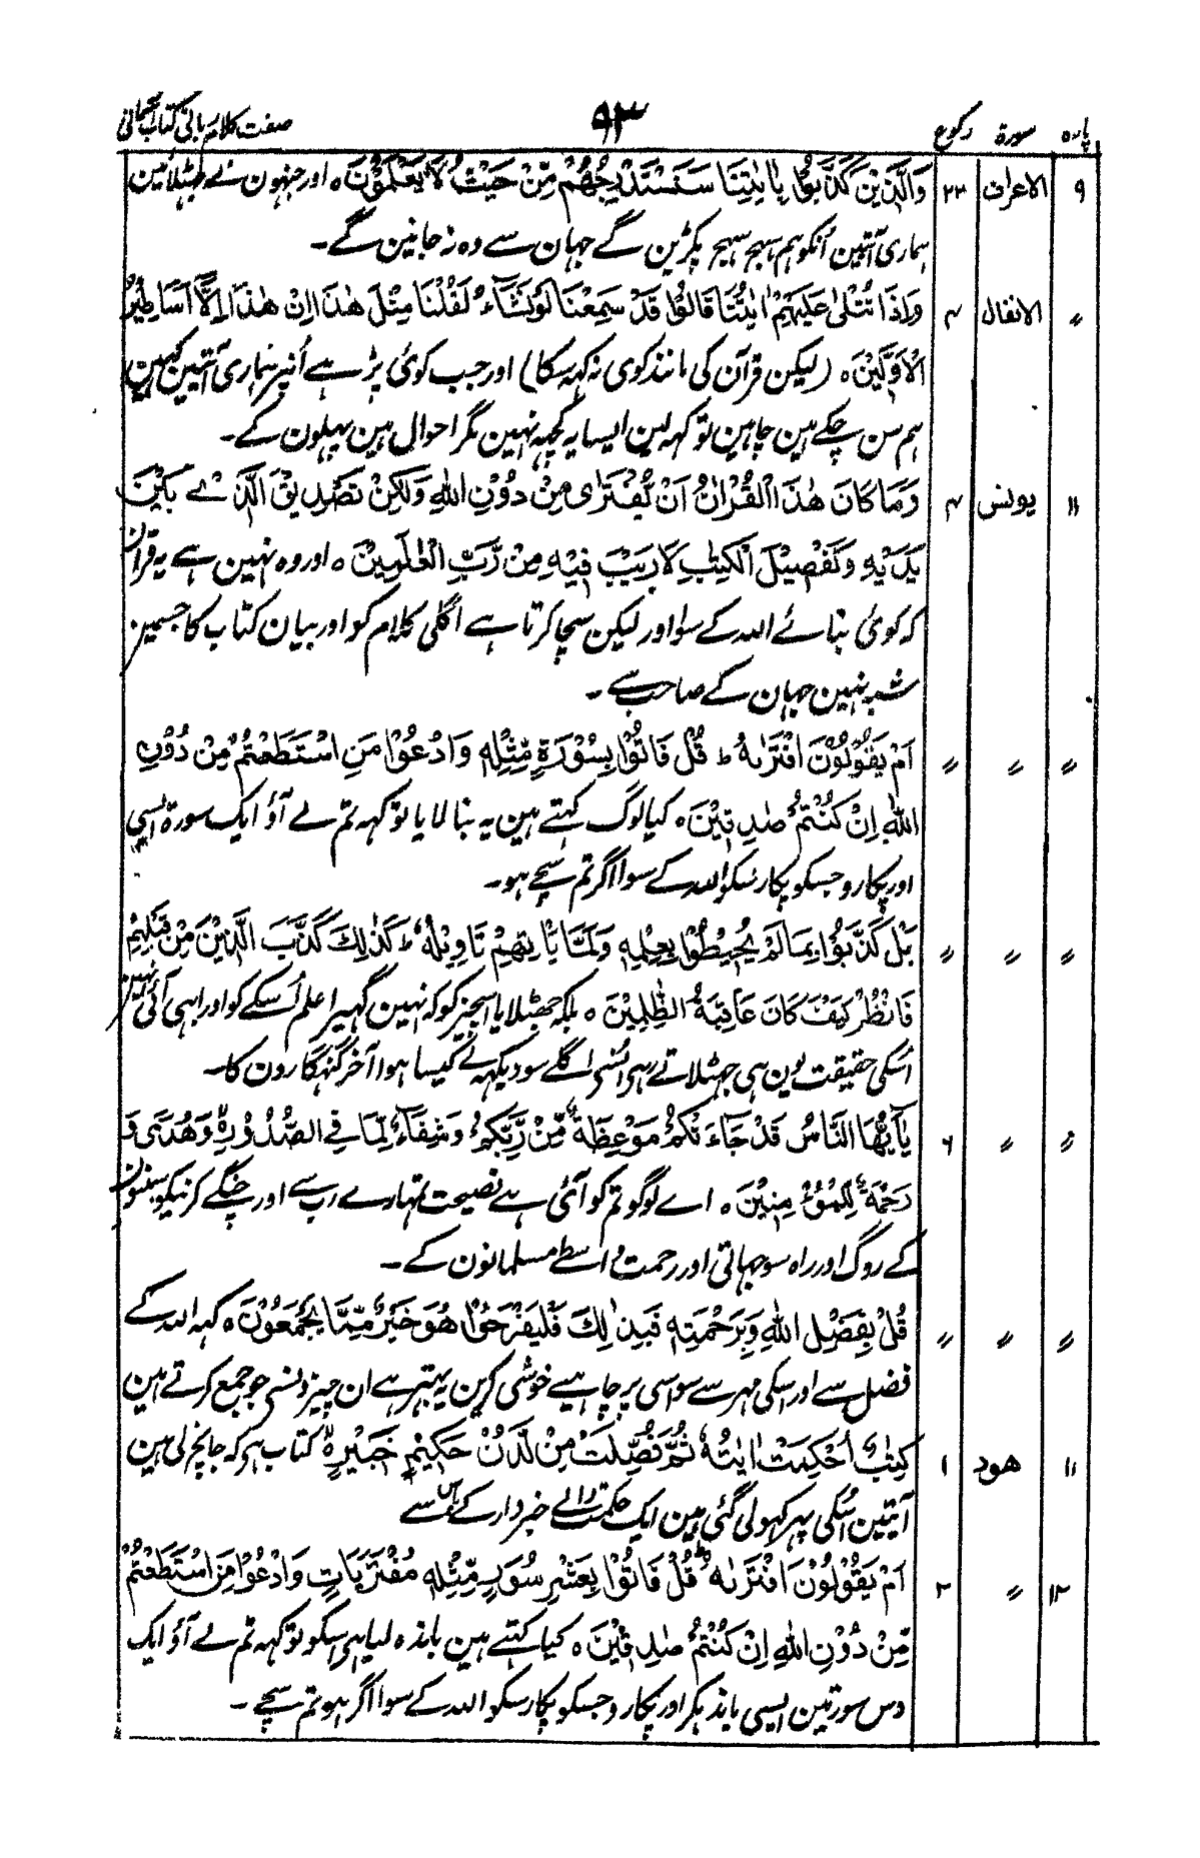 پارہ سورۃ رکوع ۹۳ صفت کلام ربانی کتاب
۹ الاعراف ۲۳ وَالَّذِيْنَ كَذَّبُوْا بِاٰيٰتِنَا سَنَسْتَدْرِجُهُمْ مِّنْ حَيْثُ لَا يَعْلَمُوْنَ ہ اور جنہون نے جھٹلائین
ہماری آیتین اُنکو ہم سہج سہج پکڑین گے جہان سے وہ نہ جانین گے۔
〃 الانفال ۴ وَاِذَا تُتْلٰى عَلَيْهِمْ اٰيٰتُنَا قَالُوْا قَدْ سَمِعْنَا لَوْ نَشَآءُ لَقُلْنَا مِثْلَ هٰذَا اِنْ هٰذَا اِلَّا اَسَاطِيْرُ
الْاَوَّلِيْنَ ہ (لیکن قرآن کی مانند کوی نہ کہہ سکا) اور جب کوئی پڑہے اُنپر ہماری آیتین کہین
ہم سن چکے ہین چاہین تو کہہ لین ایسا یہ کچہہ نہین مگر احوال ہین پہلون کے۔
۱۱ یونس ۴ وَمَا كَانَ هٰذَا الْقُرْاٰنُ اَنْ يُّفْتَرٰى مِنْ دُوْنِ اللهِ وَلٰكِنْ تَصْدِيْقَ الَّذِيْ بَيْنَ
يَدَيْهِ وَتَفْصِيْلَ الْكِتٰبِ لَا رَيْبَ فِيْهِ مِنْ رَّبِّ الْعٰلَمِيْنَ ہ اور وہ نہین ہے یہ قرآن
کہ کوئی بنائے اللہ کے سوا اور لیکن سچا کرتا ہے اگلی کلام کو اور بیان کتاب کا جسمین
شبہ نہین جہان کے صاحب سے۔
〃 〃 〃 اَمْ يَقُوْلُوْنَ افْتَرٰىهُ ط قُلْ فَاْتُوْا بِسُوْرَةٍ مِّثْلِهٖ وَادْعُوْا مَنِ اسْتَطَعْتُمْ مِّنْ دُوْنِ
اللهِ اِنْ كُنْتُمْ صٰدِقِيْنَ ہ کیا لوگ کہتے ہین یہ بنا لایا تو کہہ تم لے آؤ ایک سورۃ ایسی
اور پکارو جسکو پکار سکو اللہ کے سوا اگر تم سچے ہو۔
〃 〃 〃 بَلْ كَذَّبُوْا بِمَا لَمْ يُحِيْطُوْا بِعِلْمِهٖ وَلَمَّا يَاْتِهِمْ تَاْوِيْلُهٗ ط كَذٰلِكَ كَذَّبَ الَّذِيْنَ مِنْ قَبْلِهِمْ
فَانْظُرْ كَيْفَ كَانَ عَاقِبَةُ الظّٰلِمِيْنَ ہ بلکہ جھٹلایا اسچیز کو کہ نہین گہیرا علم اُسکے کو اور ابہی آئی نہین
اُسکی حقیقت یون ہی جہٹلاتے رہے اُنسے اگلے سو دیکہہ لے کیسا ہوا آخر گنہگارون کا۔
〃 〃 ۶ يٰٓاَيُّهَا النَّاسُ قَدْ جَآءَتْكُمْ مَّوْعِظَةٌ مِّنْ رَّبِّكُمْ وَشِفَآءٌ لِّمَا فِي الصُّدُوْرِ ہ وَهُدًى وَّ
رَحْمَةٌ لِّلْمُؤْمِنِيْنَ ہ اے لوگو تم کو آئی ہے نصیحت تمہارے رب سے اور چنگے کرنیکو سینون
کے روگ اور راہ سوجہاتی اور رحمت واسطے مسلمانون کے۔
〃 〃 〃 قُلْ بِفَضْلِ اللهِ وَبِرَحْمَتِهٖ فَبِذٰلِكَ فَلْيَفْرَحُوْا هُوَ خَيْرٌ مِّمَّا يَجْمَعُوْنَ ہ کہہ اللہ کے
فضل سے اور اسکی مہر سے سو اسی پر چاہیے خوشی کرین یہ بہتر ہے ان چیزونسے جو جمع کرتے ہین
۱۱ هود ۱ كِتٰبٌ اُحْكِمَتْ اٰيٰتُهٗ ثُمَّ فُصِّلَتْ مِنْ لَّدُنْ حَكِيْمٍ خَبِيْرٍ ہ کتاب ہے کہ جانچ لی ہین
آیتین اُسکی پہر کہولی گئی ہین ایک حکمت والے خبردار کے پاس سے
۱۲ 〃 ۲ اَمْ يَقُوْلُوْنَ افْتَرٰىهُ ط قُلْ فَاْتُوْا بِعَشْرِ سُوَرٍ مِّثْلِهٖ مُفْتَرَيٰتٍ وَادْعُوْا مَنِ اسْتَطَعْتُمْ
مِّنْ دُوْنِ اللهِ اِنْ كُنْتُمْ صٰدِقِيْنَ ہ کیا کہتے ہین باندہ لیا ہی اسکو تو کہہ تم لے آؤ ایک
دس سورتین ایسی باندہکر اور پکارو جسکو پکار سکو اللہ کے سوا اگر ہو تم سچے۔